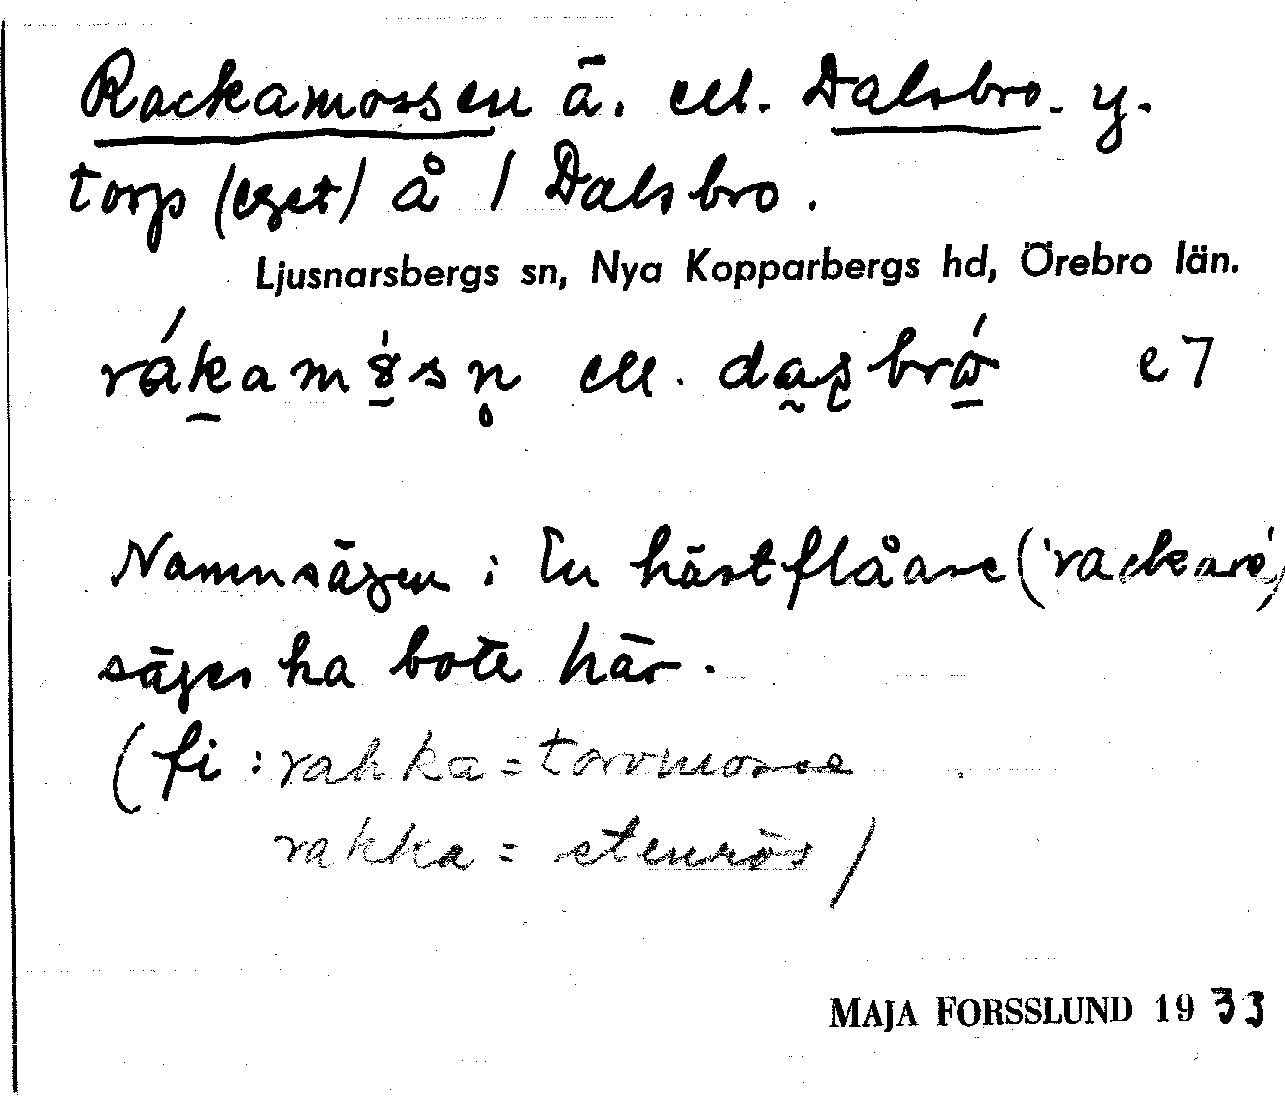 Rackamossen ä. ell. Dalsbro. y.
torp (eget) å 1 Dalsbro.
Ljusnarsbergs sn, Nya Kopparbergs hd, Örebro län.
ell. e7
Namnsägen: En hästflåare ('rackare')
säges ha bott här.
(fi: rahka = torvmosse
rakka = stenrös)
MAJA FORSSLUND 1933